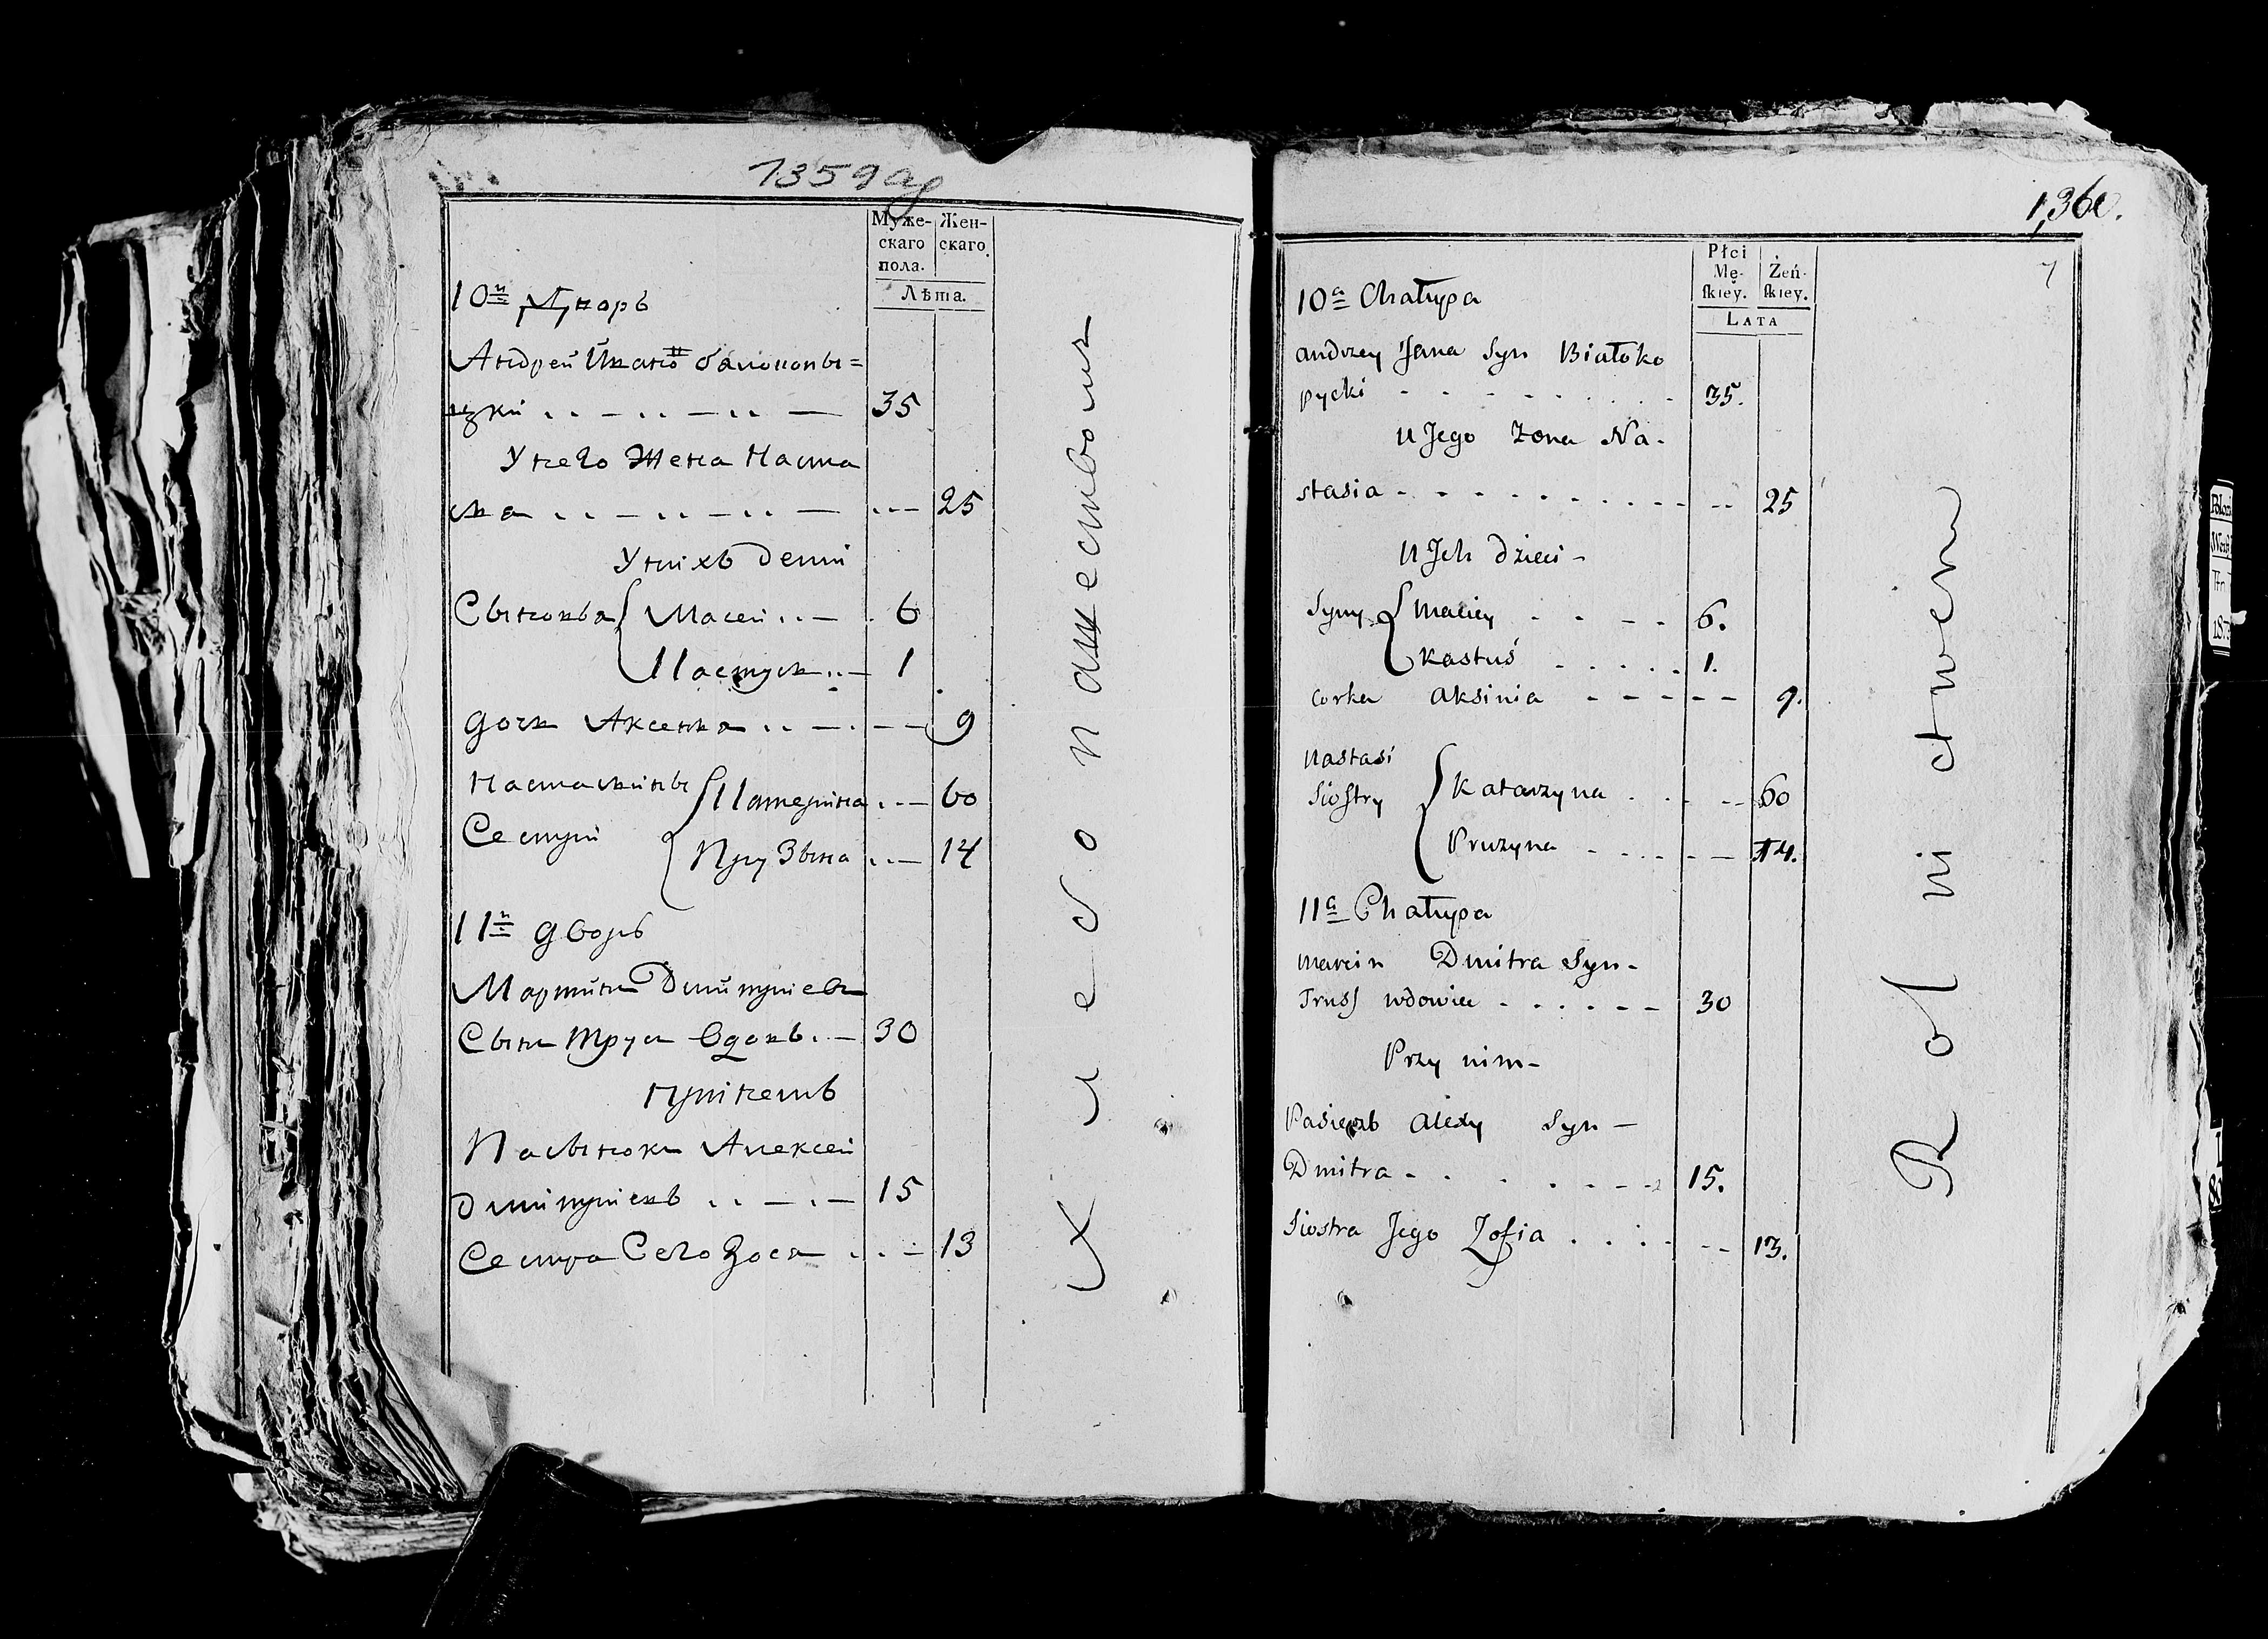 1359
Муже-
скаго
пола.
Жен-
скаго.
Лѣта.
10й Дворъ
Андрей
35
У него Жена Наста
25
У нихъ дети
Сыновья Масей 6
Кастусь 1
дочь Аксенья 9
Катерина 60
Сестры
Прузына 14
11й дворъ
Мартинъ Дмитриевъ
Сынъ Трусъ вдовъ 30
при немъ
Пасынокъ Алексей
Дмитриевъ 15
Сестра Його Зося 13
Хлебопашествомъ
1,360.
Płci
Mę-
skiey.
Żeń-
skiey.
LATA
10a Chałupa
Andrzey Jana Syn Białoko
pycki 35.
U Jego Zona Na-
stasia 25
U Jch dzieci -
Syny Maciey 6.
Kastuś 1.
Corka Aksinia 9.
Nastasi
Siostry Katarzyna 60
Pruzyna 14.
11a Chałupa
Marcin Dmitra Syn -
Truss wdowiec 30
Przy nim -
Pasierb Alexy Syn -
Dmitra 15.
Siostra Jego Zofia 13.
Rolnictwem